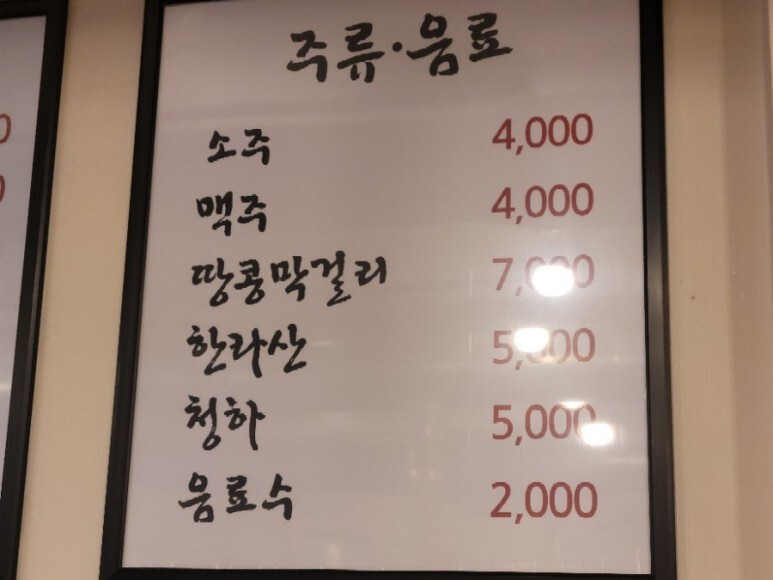 주류·음료
소주 4,000
맥주 4,000
땅콩막걸리 7,000
한라산 5,000
청하 5,000
음료수 2,000